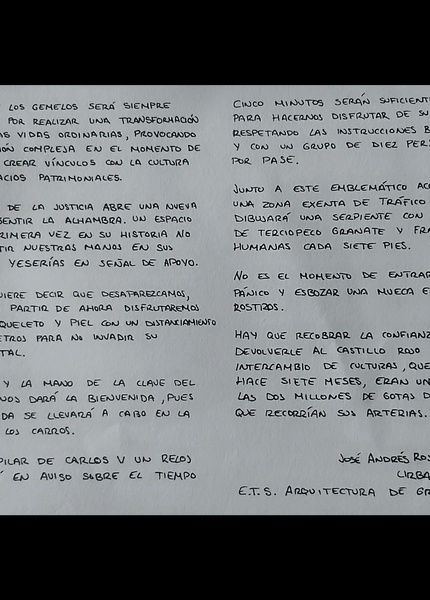 LOS GEMELOS SERÁ SIEMPRE
POR REALIZAR UNA TRANSFORMACIÓN
VIDAS ORDINARIAS, PROVOCANDO
COMPLEJA EN EL MOMENTO DE
CREAR VÍNCULOS CON LA CULTURA
PATRIMONIALES.
DE LA JUSTICIA ABRE UNA NUEVA
SENTIR LA ALHAMBRA. UN ESPACIO
VEZ EN SU HISTORIA NO
NUESTRAS MANOS EN SUS
YESERÍAS EN SEÑAL DE APOYO.
DECIR QUE DESAPAREZCAMOS,
PARTIR DE AHORA DISFRUTAREMOS
Y PIEL CON UN DISTANCIAMIENTO
PARA NO INVADIR SU
Y LA MANO DE LA CLAVE DEL
NOS DARÁ LA BIENVENIDA, PUES
SE LLEVARÁ A CABO EN LA
LOS CARROS.
PILAR DE CARLOS V UN RELOJ
EN AVISO SOBRE EL TIEMPO
CINCO MINUTOS SERÁN
PARA HACERNOS DISFRUTAR DE SU
RESPETANDO LAS INSTRUCCIONES
Y CON UN GRUPO DE DIEZ
POR PASE.
JUNTO A ESTE EMBLEMÁTICO
UNA ZONA EXENTA DE TRÁFICO
DIBUJARÁ UNA SERPIENTE CON
DE TERCIOPELO GRANATE Y
HUMANAS CADA SIETE PIES.
NO ES EL MOMENTO DE ENTRAR
PÁNICO Y ESBOZAR UNA MUECA
ROSTROS.
HAY QUE RECOBRAR LA
DEVOLVERLE AL CASTILLO ROJO
INTERCAMBIO DE CULTURAS,
HACE SIETE MESES, ERAN
LAS DOS MILLONES DE GOTAS
QUE RECORRÍAN SUS ARTERIAS.
JOSÉ ANDRÉS
E.T.S. ARQUITECTURA DE